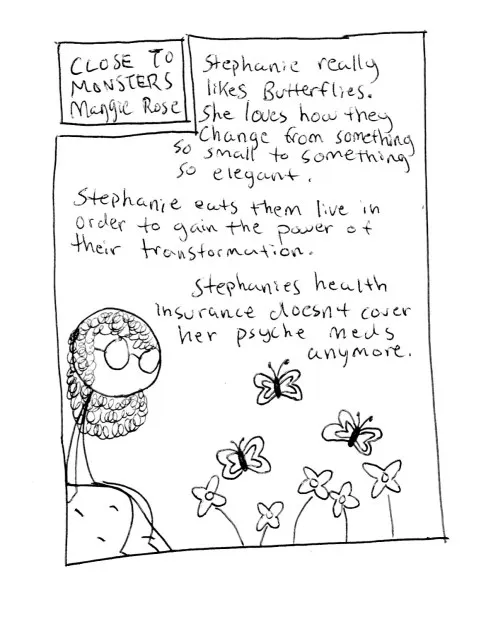 CLOSE TO
MONSTERS
Maggie Rose
Stephanie really
likes Butterflies.
She loves how they
Change from something
so small to something
so elegant.
Stephanie eats them live in
order to gain the power of
their transformation.
Stephanies health
insurance doesnt cover
her psyche meds
anymore.